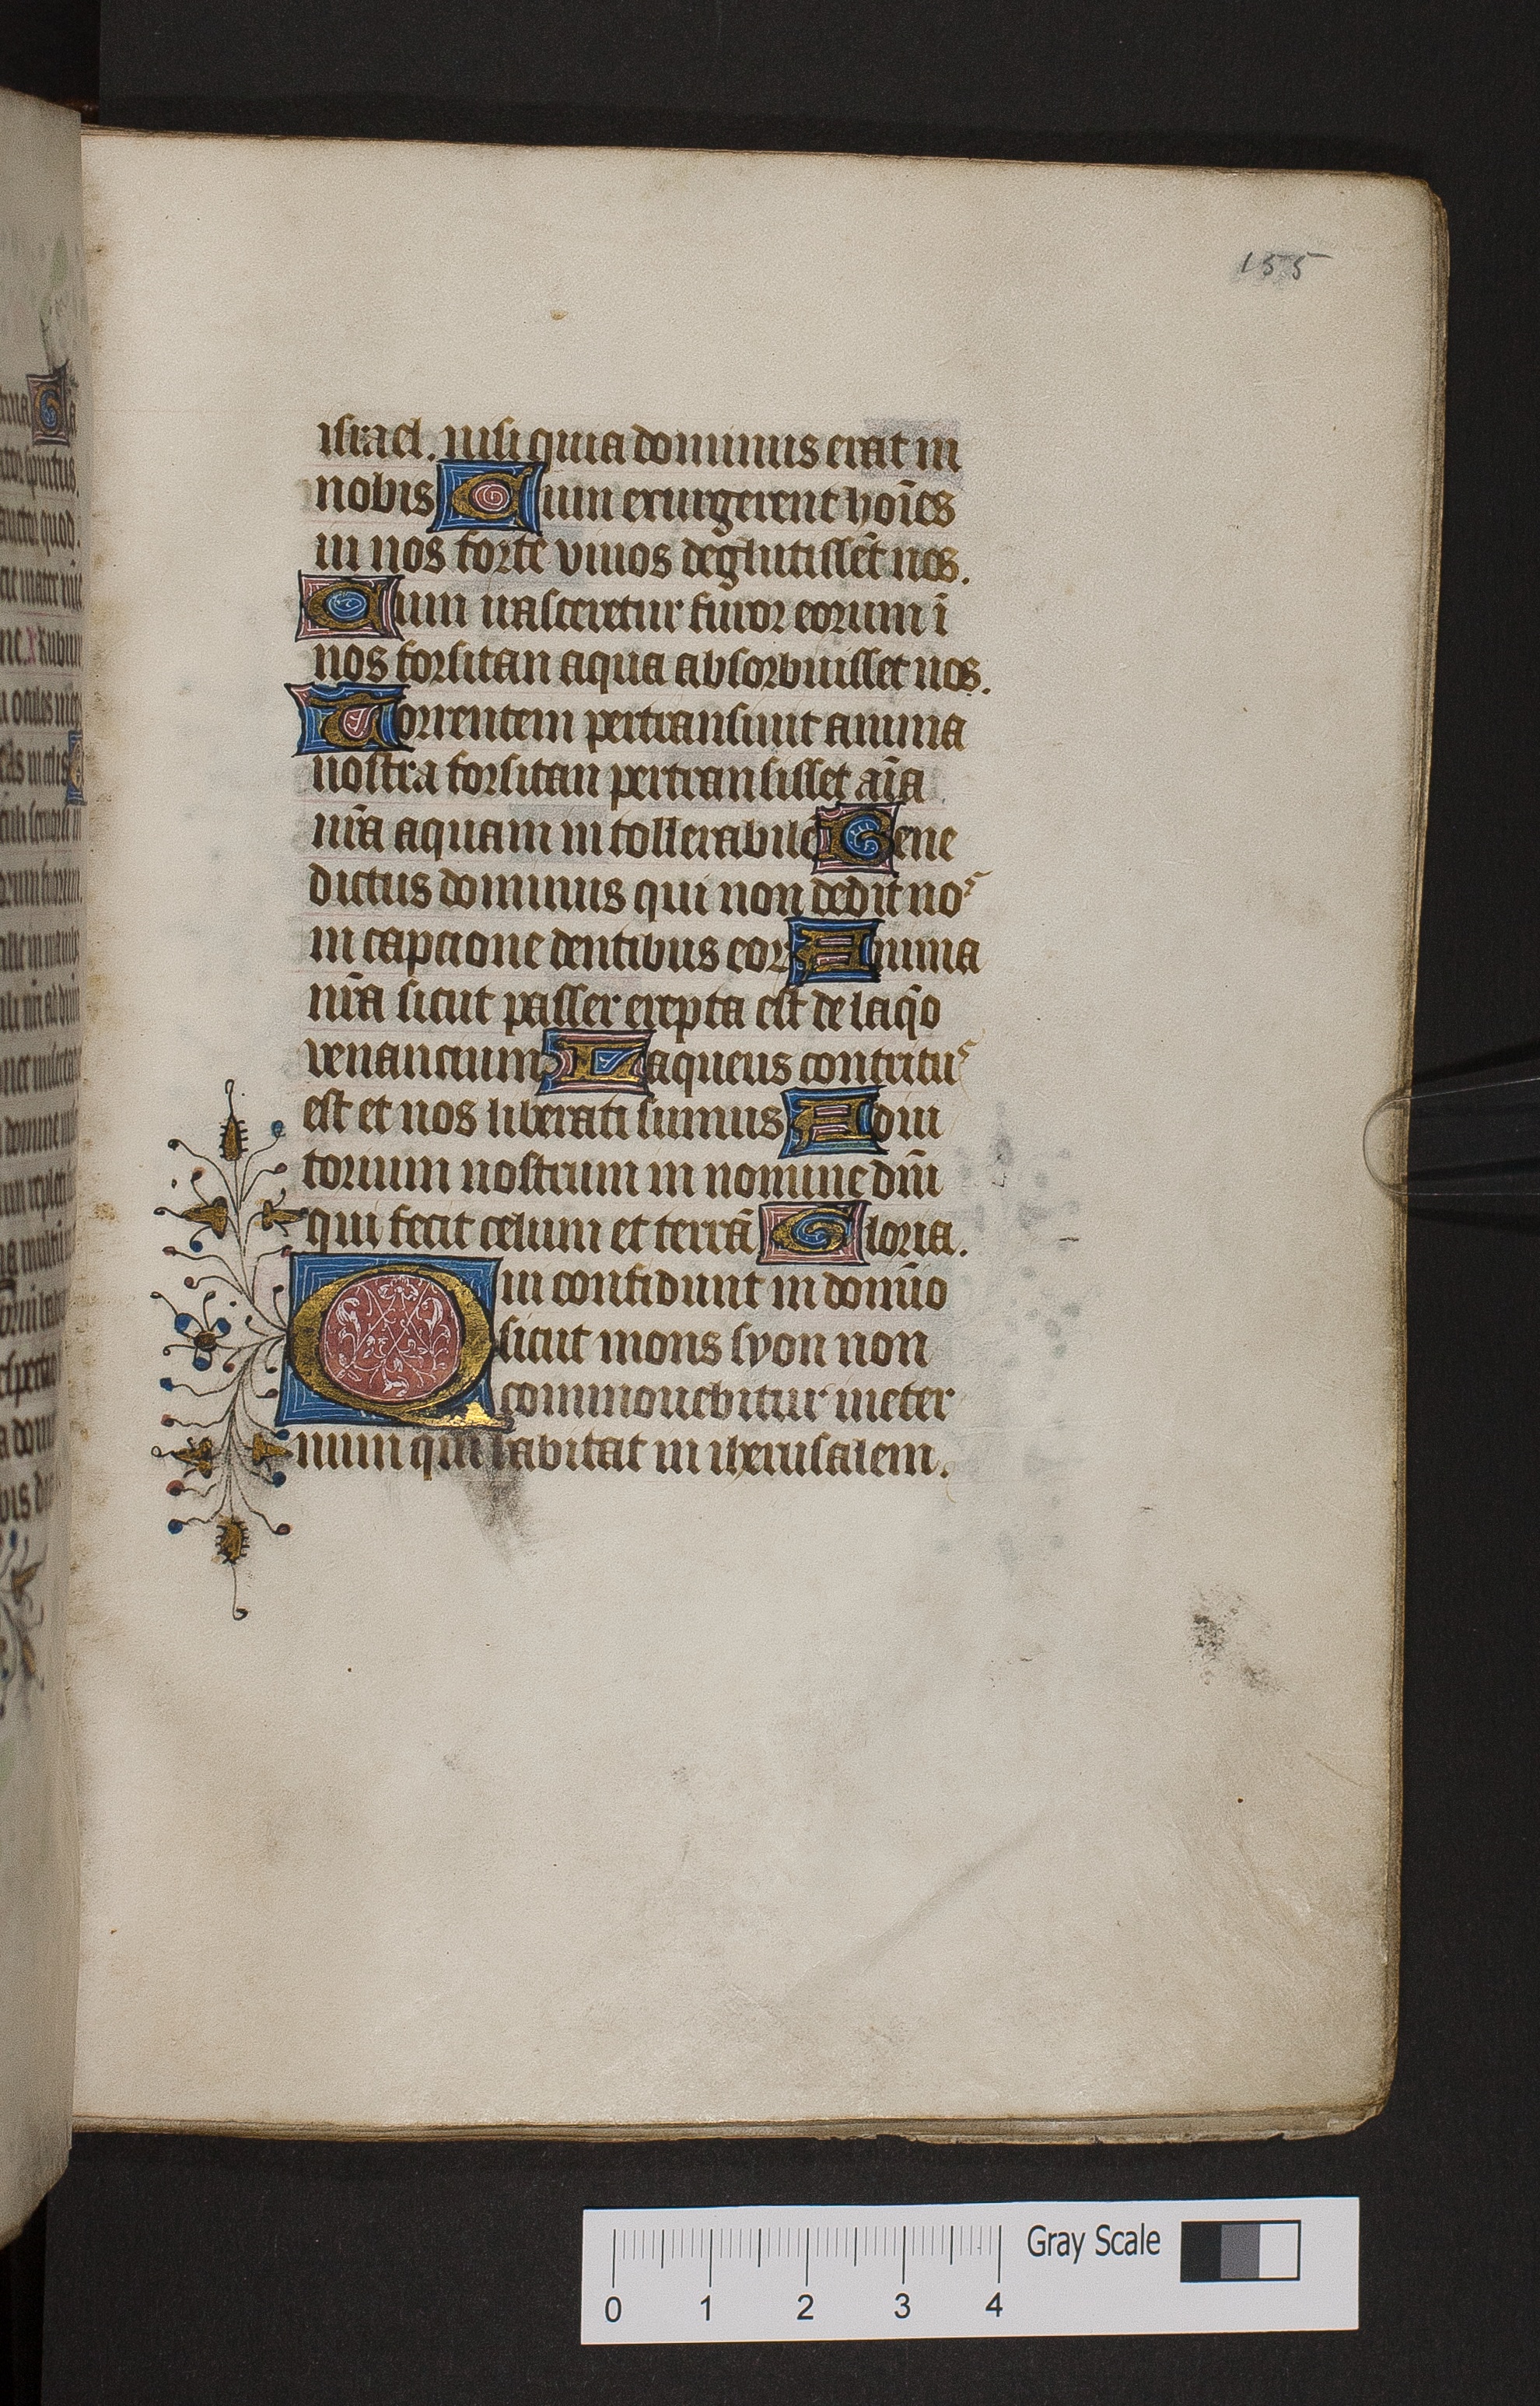 155
israel. nisi quia dominus erat in
nobis Cum exurgerent hoīes
in nos forte viuos deglutissēt nos.
Cum irasceretur furor eorum ī
nos forsitan aqua absorbuisset nos.
Torrentem pertransiuit anima
nostra forsitan pertransisset aīa
nr̄a aquam in tollerabilē Bene
dictus dominus qui non dedit nos
in captione dentibus eorꝝ Anima
nr̄a sicut passer erepta est de laq̄o
venantium Laqueus contritus
est et nos liberati sumus Adiu
torium nostrum in nomine dn̄i
qui fecit celum et terrā Gloria.
Qui confidunt in domīo
sicut mons syon non
commouebitur ineter
num qui habitat in iherusalem.
Gray Scale
0 1 2 3 4